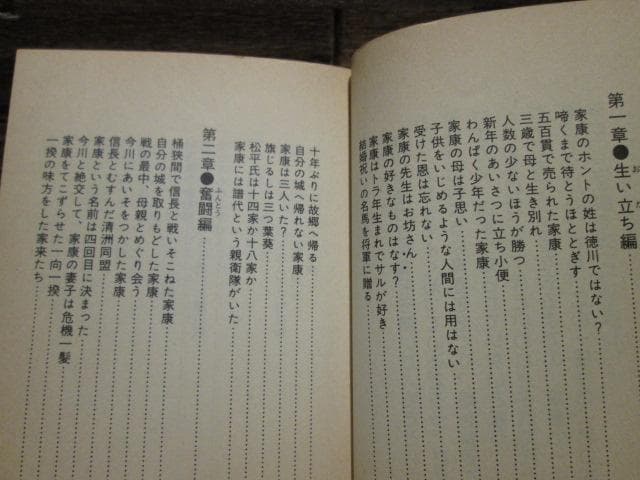 第一章●生い立ち編
お
た
家康のホントの姓は徳川ではない？
啼くまで待とうほととぎす
五百貫で売られた家康
三歳で母と生き別れ
人数の少ないほうが勝つ
新年のあいさつに立ち小便
わんぱく少年だった家康
家康の母は子思い
子供をいじめるような人間には用はない
受けた恩は忘れない
家康の先生はお坊さん
家康の好きなものはなす？
家康はトラ年生まれでサルが好き
結婚祝いの名馬を将軍に贈る
十年ぶりに故郷へ帰る
自分の城へ帰れない家康
家康は三人いた？
旗じるしは三つ葉葵
松平氏は十四家か十八家か
家康には譜代という親衛隊がいた
第二章●奮闘編
ふんとう
桶狭間で信長と戦いそこねた家康
自分の城を取りもどした家康
戦の最中、母親とめぐり会う
今川にあいそをつかした家康
信長とむすんだ清洲同盟
家康という名前は四回目に決まった
今川と絶交して、家康の妻子は危機一髪
家康をてこずらせた一向一揆
一揆の味方をした家来たち